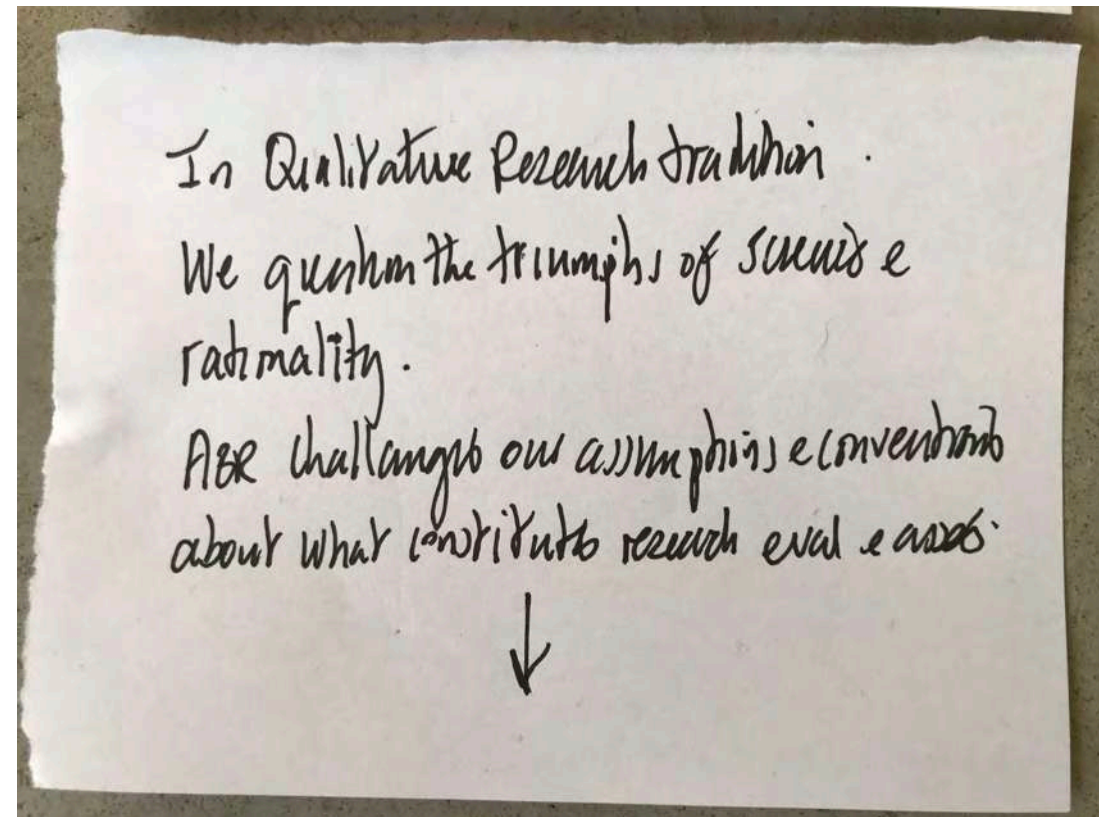 In Qualitative Research tradition.
We question the triumphs of science e
rationality.
ABR challanges our assumptions e conventions
about what constitutes research eval e asses.
↓